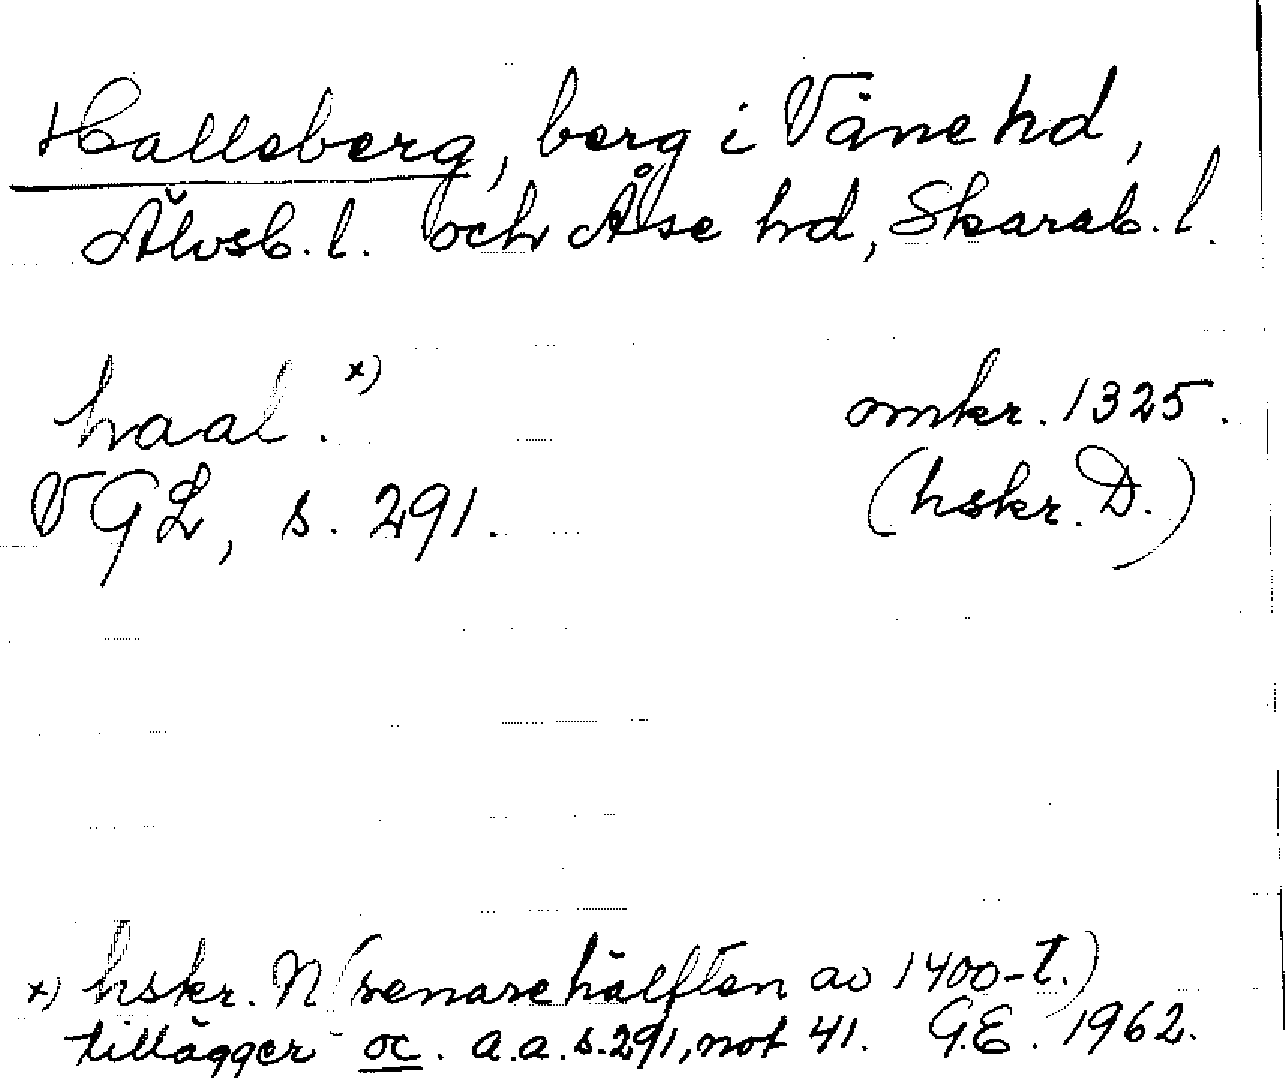 Halleberg, berg i Väne hd,
Älvsb. l. och Åse hd, Skarab. l.
haal. x)
omkr. 1325.
VGL, s. 291.
(hskr. D.)
x) hskr. N (senare hälften av 1400-t.)
tillägger oc. a.a. s. 291, not 41. G.E. 1962.